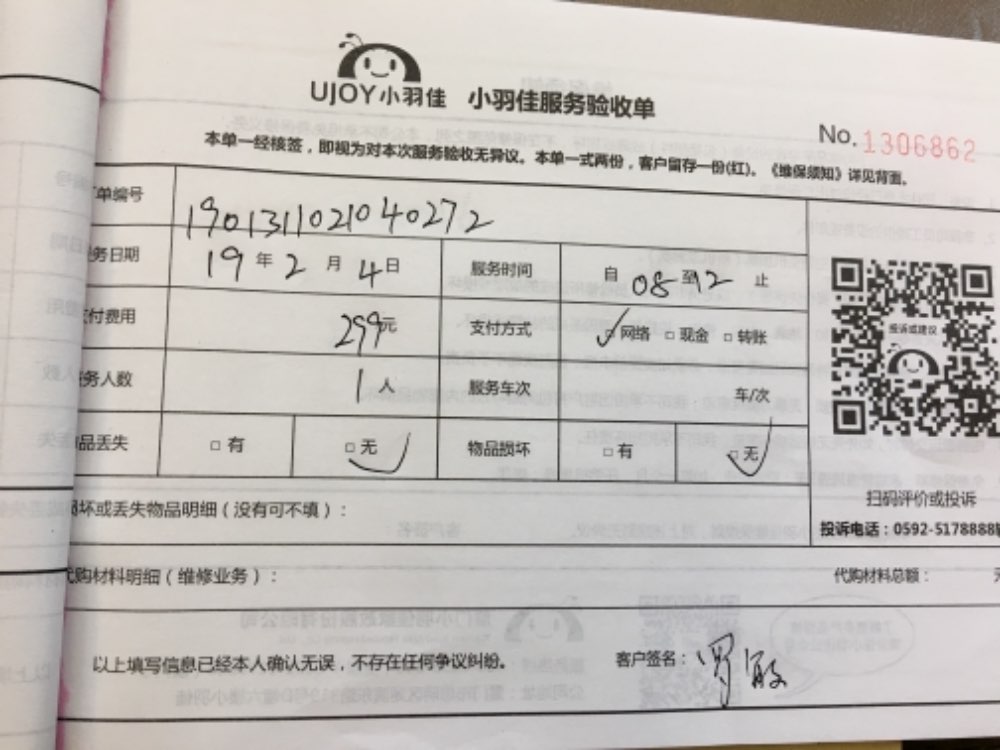 UJOY小羽佳 小羽佳服务验收单
No. 1306862
本单一经核签，即视为对本次服务验收无异议。本单一式两份，客户留存一份(红)。《维保须知》详见背面。
单编号 190131102104027 2
务日期 19 年 2 月 4 日 服务时间 自 08 到 12 止
付费用 299元 支付方式 网络 □ 现金 □ 转账
务人数 1 人 服务车次 车/次
品丢失 □ 有 □ 无 物品损坏 □ 有 □ 无
投诉或建议
扫码评价或投诉
投诉电话：0592-5178888
损坏或丢失物品明细（没有可不填）：
代购材料明细（维修业务）： 代购材料总额：
以上填写信息已经本人确认无误，不存在任何争议纠纷。 客户签名：罗敏